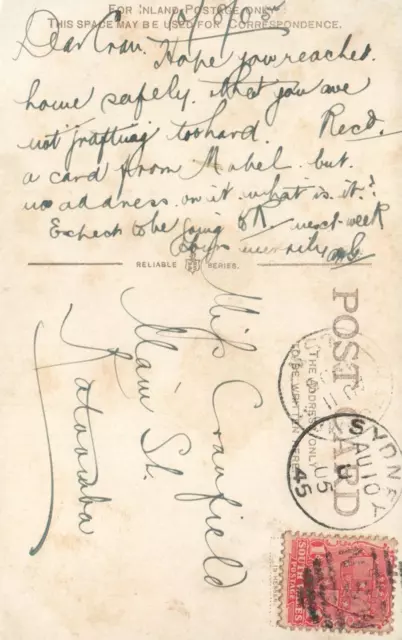 FOR INLAND POSTAGE ONLY
THIS SPACE MAY BE USED FOR CORRESPONDENCE.
Dear Cran. Hope you reached
home safely. that you are
not grafting too hard. Recd.
a card from Mabel. but
no address on it what is it?
Expect to be going to K. next week
RELIABLE SERIES.
POST CARD
THE ADDRESS ONLY
TO BE WRITTEN HERE
Miss Cranfield
Main St.
Katoomba
SYDNEY
AU 10
05
45
SOUTH WALES
POSTAGE